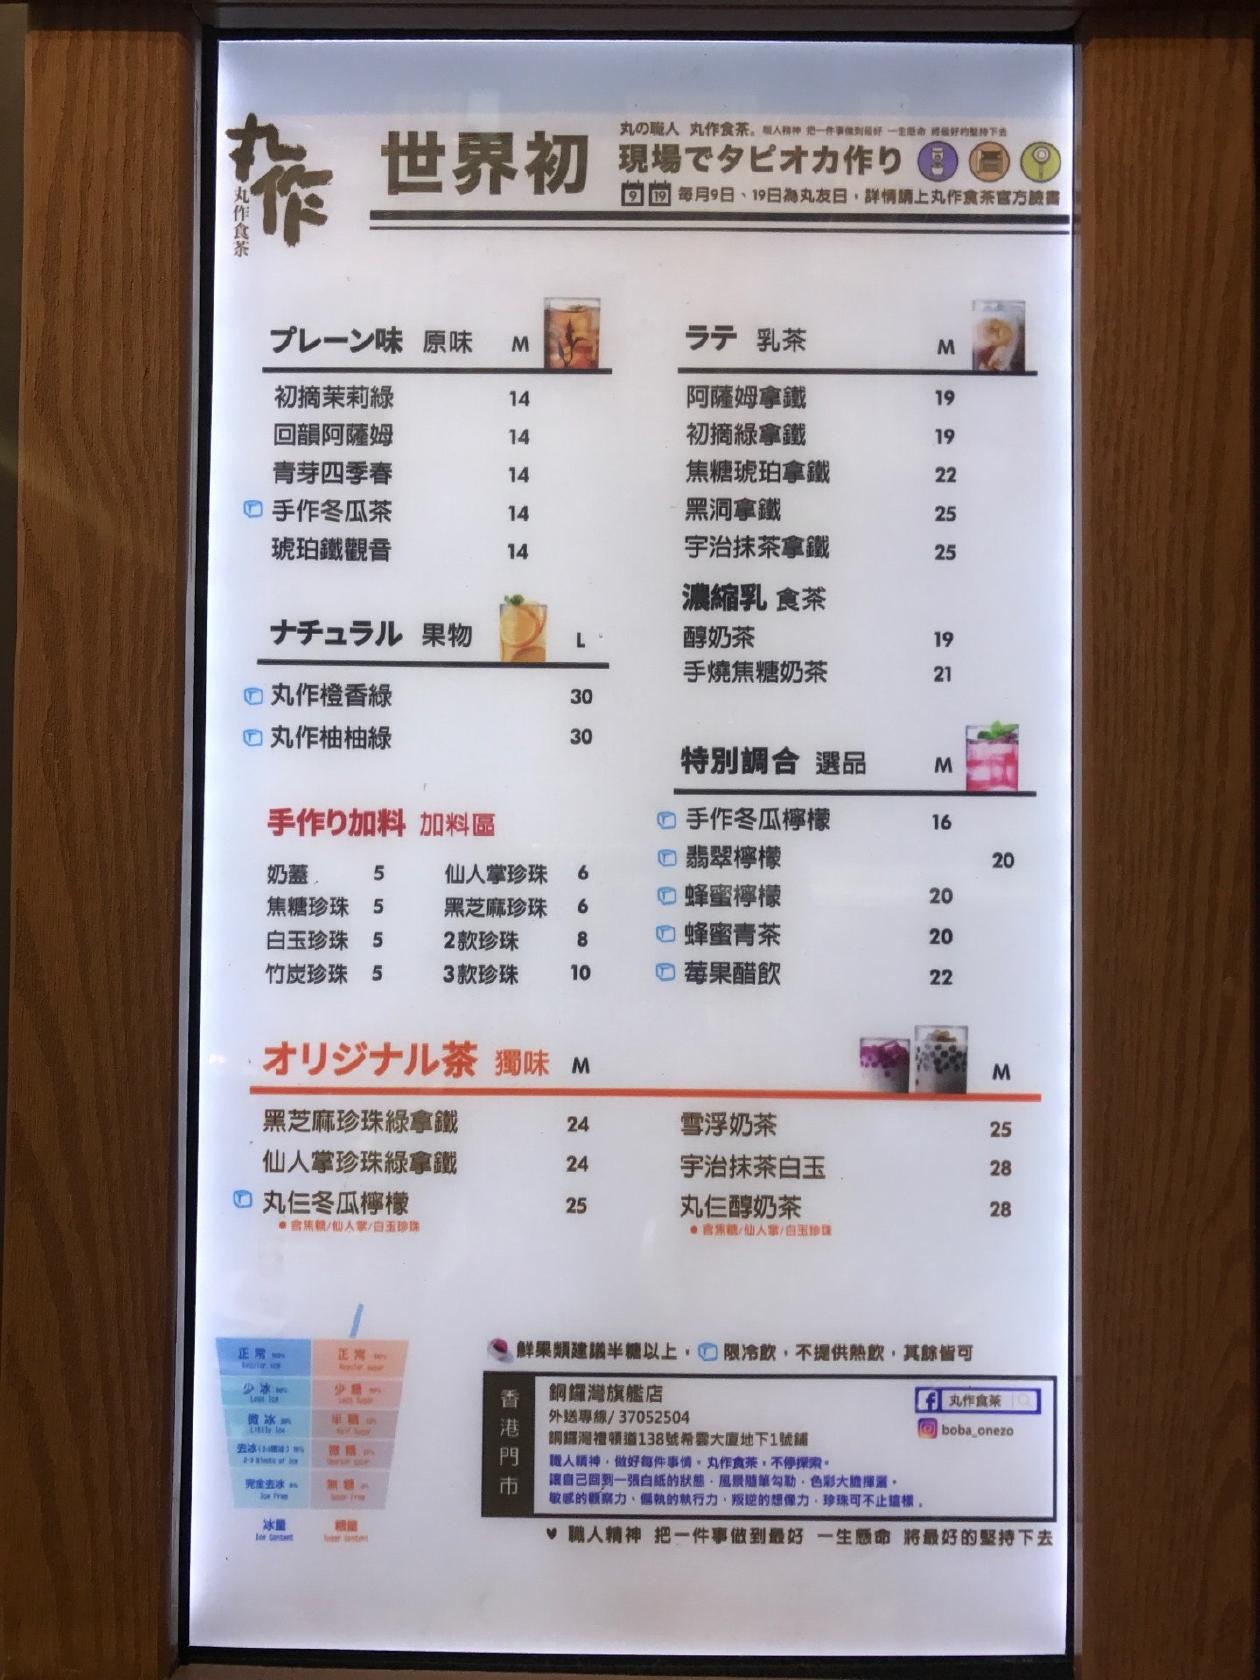 丸作
丸作食茶
世界初
丸の職人 丸作食茶。職人精神 把一件事做到最好 一生懸命 將最好的堅持下去
現場でタピオカ作り
9 19 每月9日、19日為丸友日，詳情請上丸作食茶官方臉書
プレーン味 原味 M
初摘茉莉綠 14
回韻阿薩姆 14
青芽四季春 14
手作冬瓜茶 14
琥珀鐵觀音 14
ナチュラル 果物 L
丸作橙香綠 30
丸作柚柚綠 30
手作り加料 加料區
奶蓋 5 仙人掌珍珠 6
焦糖珍珠 5 黑芝麻珍珠 6
白玉珍珠 5 2款珍珠 8
竹炭珍珠 5 3款珍珠 10
ラテ 乳茶 M
阿薩姆拿鐵 19
初摘綠拿鐵 19
焦糖琥珀拿鐵 22
黑洞拿鐵 25
宇治抹茶拿鐵 25
濃縮乳 食茶
醇奶茶 19
手燒焦糖奶茶 21
特別調合 選品 M
手作冬瓜檸檬 16
翡翠檸檬 20
蜂蜜檸檬 20
蜂蜜青茶 20
莓果醋飲 22
オリジナル茶 獨味 M M
黑芝麻珍珠綠拿鐵 24
仙人掌珍珠綠拿鐵 24
丸仨冬瓜檸檬 25
●含焦糖/仙人掌/白玉珍珠
雪浮奶茶 25
宇治抹茶白玉 28
丸仨醇奶茶 28
●含焦糖/仙人掌/白玉珍珠
正常 正常
Regular ice Regular sugar
少冰 少糖
Less Ice Less Sugar
微冰 半糖
Little Ice Half Sugar
去冰 微糖
完全去冰 無糖
Ice Free Sugar Free
冰量 糖量
Ice Content Sugar Content
鮮果類建議半糖以上，限冷飲，不提供熱飲，其餘皆可
香港門市
銅鑼灣旗艦店
外送專線/ 37052504
銅鑼灣禮頓道138號希雲大廈地下1號舖
丸作食茶
boba_onezo
職人精神，做好每件事情。丸作食茶，不停探索。
讓自己回到一張白紙的狀態，風景隨筆勾勒，色彩大膽揮灑。
敏感的觀察力、偏執的執行力、叛逆的想像力，珍珠可不止這樣。
♥ 職人精神 把一件事做到最好 一生懸命 將最好的堅持下去